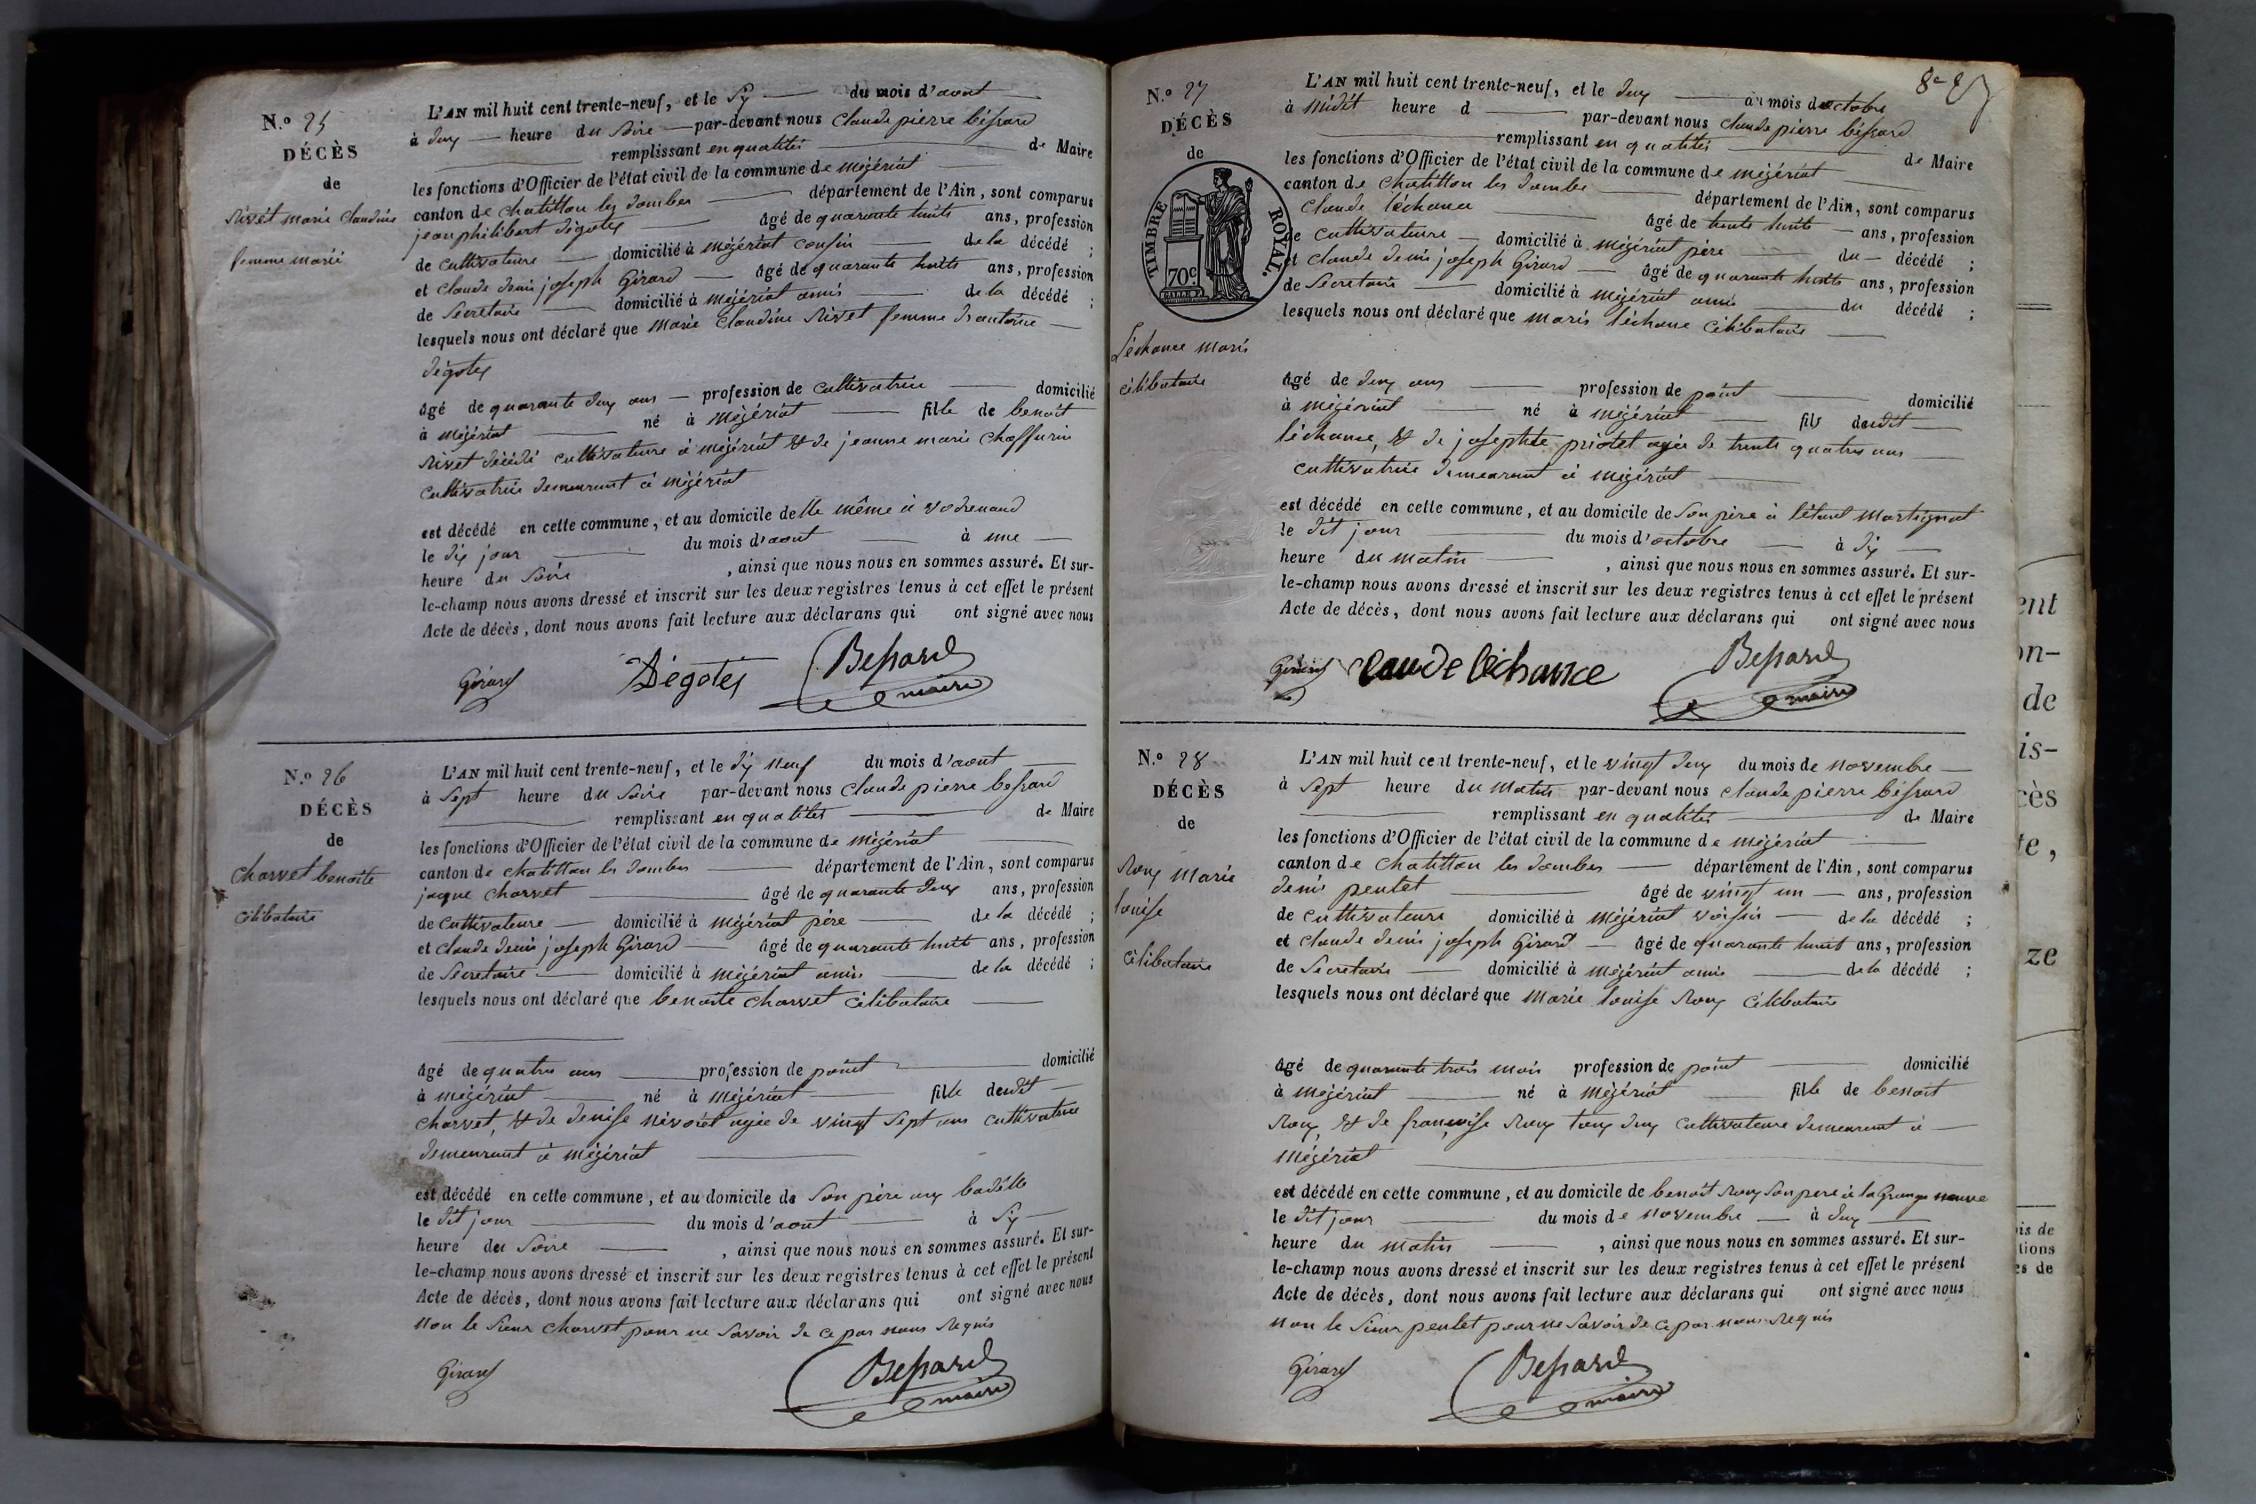 N.o 25
DÉCÈS
de
Rivet marie claudine
femme marié
L'AN mil huit cent trente-neuf, et le dix du mois d'aout
à deux heure du soire par-devant nous claude pierre bessard
remplissant en qualités de Maire
les fonctions d'Officier de l'état civil de la commune de mézériat
canton de chatillon les dombes département de l'Ain, sont comparus
jean philibert dégotes âgé de quarante huits ans, profession
de cultivateure domicilié à mézériat cousin de la décédé ;
et claude denis joseph Girard âgé de quarante huits ans, profession
de Secretaire domicilié à mézériat amis de la décédé ;
lesquels nous ont déclaré que marie claudine Rivet femme d'antoine
dégotes
âgé de quarante deux ans profession de cultivatrice domicilié
à mézériat né à mézériat fille de benoit
Rivet décédé cultivateure à mézériat & de jeanne marie
cultivatrice demeurant à mézériat
est décédé en cette commune, et au domicile delle même à
le dix jour du mois d'aout à une
heure du soire , ainsi que nous nous en sommes assuré. Et sur-
le-champ nous avons dressé et inscrit sur les deux registres tenus à cet effet le présent
Acte de décès, dont nous avons fait lecture aux déclarans qui ont signé avec nous
Girard Dégotes Bessard
maire
N.o 26
DÉCÈS
de
charvet benoite
célibataire
L'AN mil huit cent trente-neuf, et le dix neuf du mois d'aout
à sept heure du soire par-devant nous claude pierre bessard
remplissant en qualités de Maire
les fonctions d'Officier de l'état civil de la commune de mézériat
canton de chatillon les dombes département de l'Ain, sont comparus
jaque charvet âgé de quarante deux ans, profession
de cultivateure domicilié à mézériat père de la décédé ;
et claude denis joseph Girard âgé de quarante huit ans, profession
de Secretaire domicilié à mézériat amis de la décédé ;
lesquels nous ont déclaré que benoite charvet célibataire
âgé de quatres ans profession de point domicilié
à mézériat né à mézériat fille dudit
charvet, & de denise agée de vingt sept ans cultivatrice
demeurant à mézériat
est décédé en cette commune, et au domicile de son père aux
le dit jour du mois d'aout à six
heure du soire , ainsi que nous nous en sommes assuré. Et sur-
le-champ nous avons dressé et inscrit sur les deux registres tenus à cet effet le présent
Acte de décès, dont nous avons fait lecture aux déclarans qui ont signé avec nous
non le sieur charvet pour ne savoir de ce par nous requis
Girard Bessard
maire
N.o 27
DÉCÈS
de
TIMBRE ROYAL.
70c
Léchance maris
célibataire
L'AN mil huit cent trente-neuf, et le deux du mois d'octobre
à midit heure d par-devant nous claude pierre bessard
remplissant en qualités de Maire
les fonctions d'Officier de l'état civil de la commune de mézériat
canton de chatillon les dombe département de l'Ain, sont comparus
claude léchance âgé de trente huits ans, profession
de cultivateure domicilié à mézériat père du décédé ;
et claude denis joseph Girard âgé de quarante huits ans, profession
de Secretaire domicilié à mézériat amis du décédé ;
lesquels nous ont déclaré que maris léchance célibataire
âgé de deux ans profession de point domicilié
à mézériat né à mézériat fils dudit
léchance, & de josephte agée de trente quatres ans
cultivatrice demeurant à mézériat
est décédé en cette commune, et au domicile de son père à
le dit jour du mois d'octobre à dix
heure du matin , ainsi que nous nous en sommes assuré. Et sur-
le-champ nous avons dressé et inscrit sur les deux registres tenus à cet effet le présent
Acte de décès, dont nous avons fait lecture aux déclarans qui ont signé avec nous
Girard claude léchance Bessard
maire
N.o 28
DÉCÈS
de
Roux marie
louise
célibataire
L'AN mil huit cent trente-neuf, et le vingt deux du mois de novembre
à sept heure du matin par-devant nous claude pierre bessard
remplissant en qualités de Maire
les fonctions d'Officier de l'état civil de la commune de mézériat
canton de chatillon les dombes département de l'Ain, sont comparus
denis peulet âgé de vingt un ans, profession
de cultivateure domicilié à mézériat voisin de la décédé ;
et claude denis joseph Girard âgé de quarante huit ans, profession
de Secretaire domicilié à mézériat amis de la décédé ;
lesquels nous ont déclaré que marie louise Roux célibataire
âgé de quarante trois mois profession de point domicilié
à mézériat né à mézériat fille de benoit
Roux, & de françoise Roux tous deux cultivateure demeurant à
mézériat
est décédé en cette commune, et au domicile de benoit Roux son pere à la Grange neuve
le dit jour du mois de novembre à deux
heure du matin , ainsi que nous nous en sommes assuré. Et sur-
le-champ nous avons dressé et inscrit sur les deux registres tenus à cet effet le présent
Acte de décès, dont nous avons fait lecture aux déclarans qui ont signé avec nous
non le sieur peulet pour ne savoir de ce par nous requis
Girard Bessard
maire